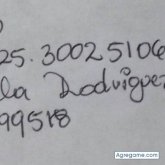 25.30025106
la Rodriguez
99518
Agregame.com